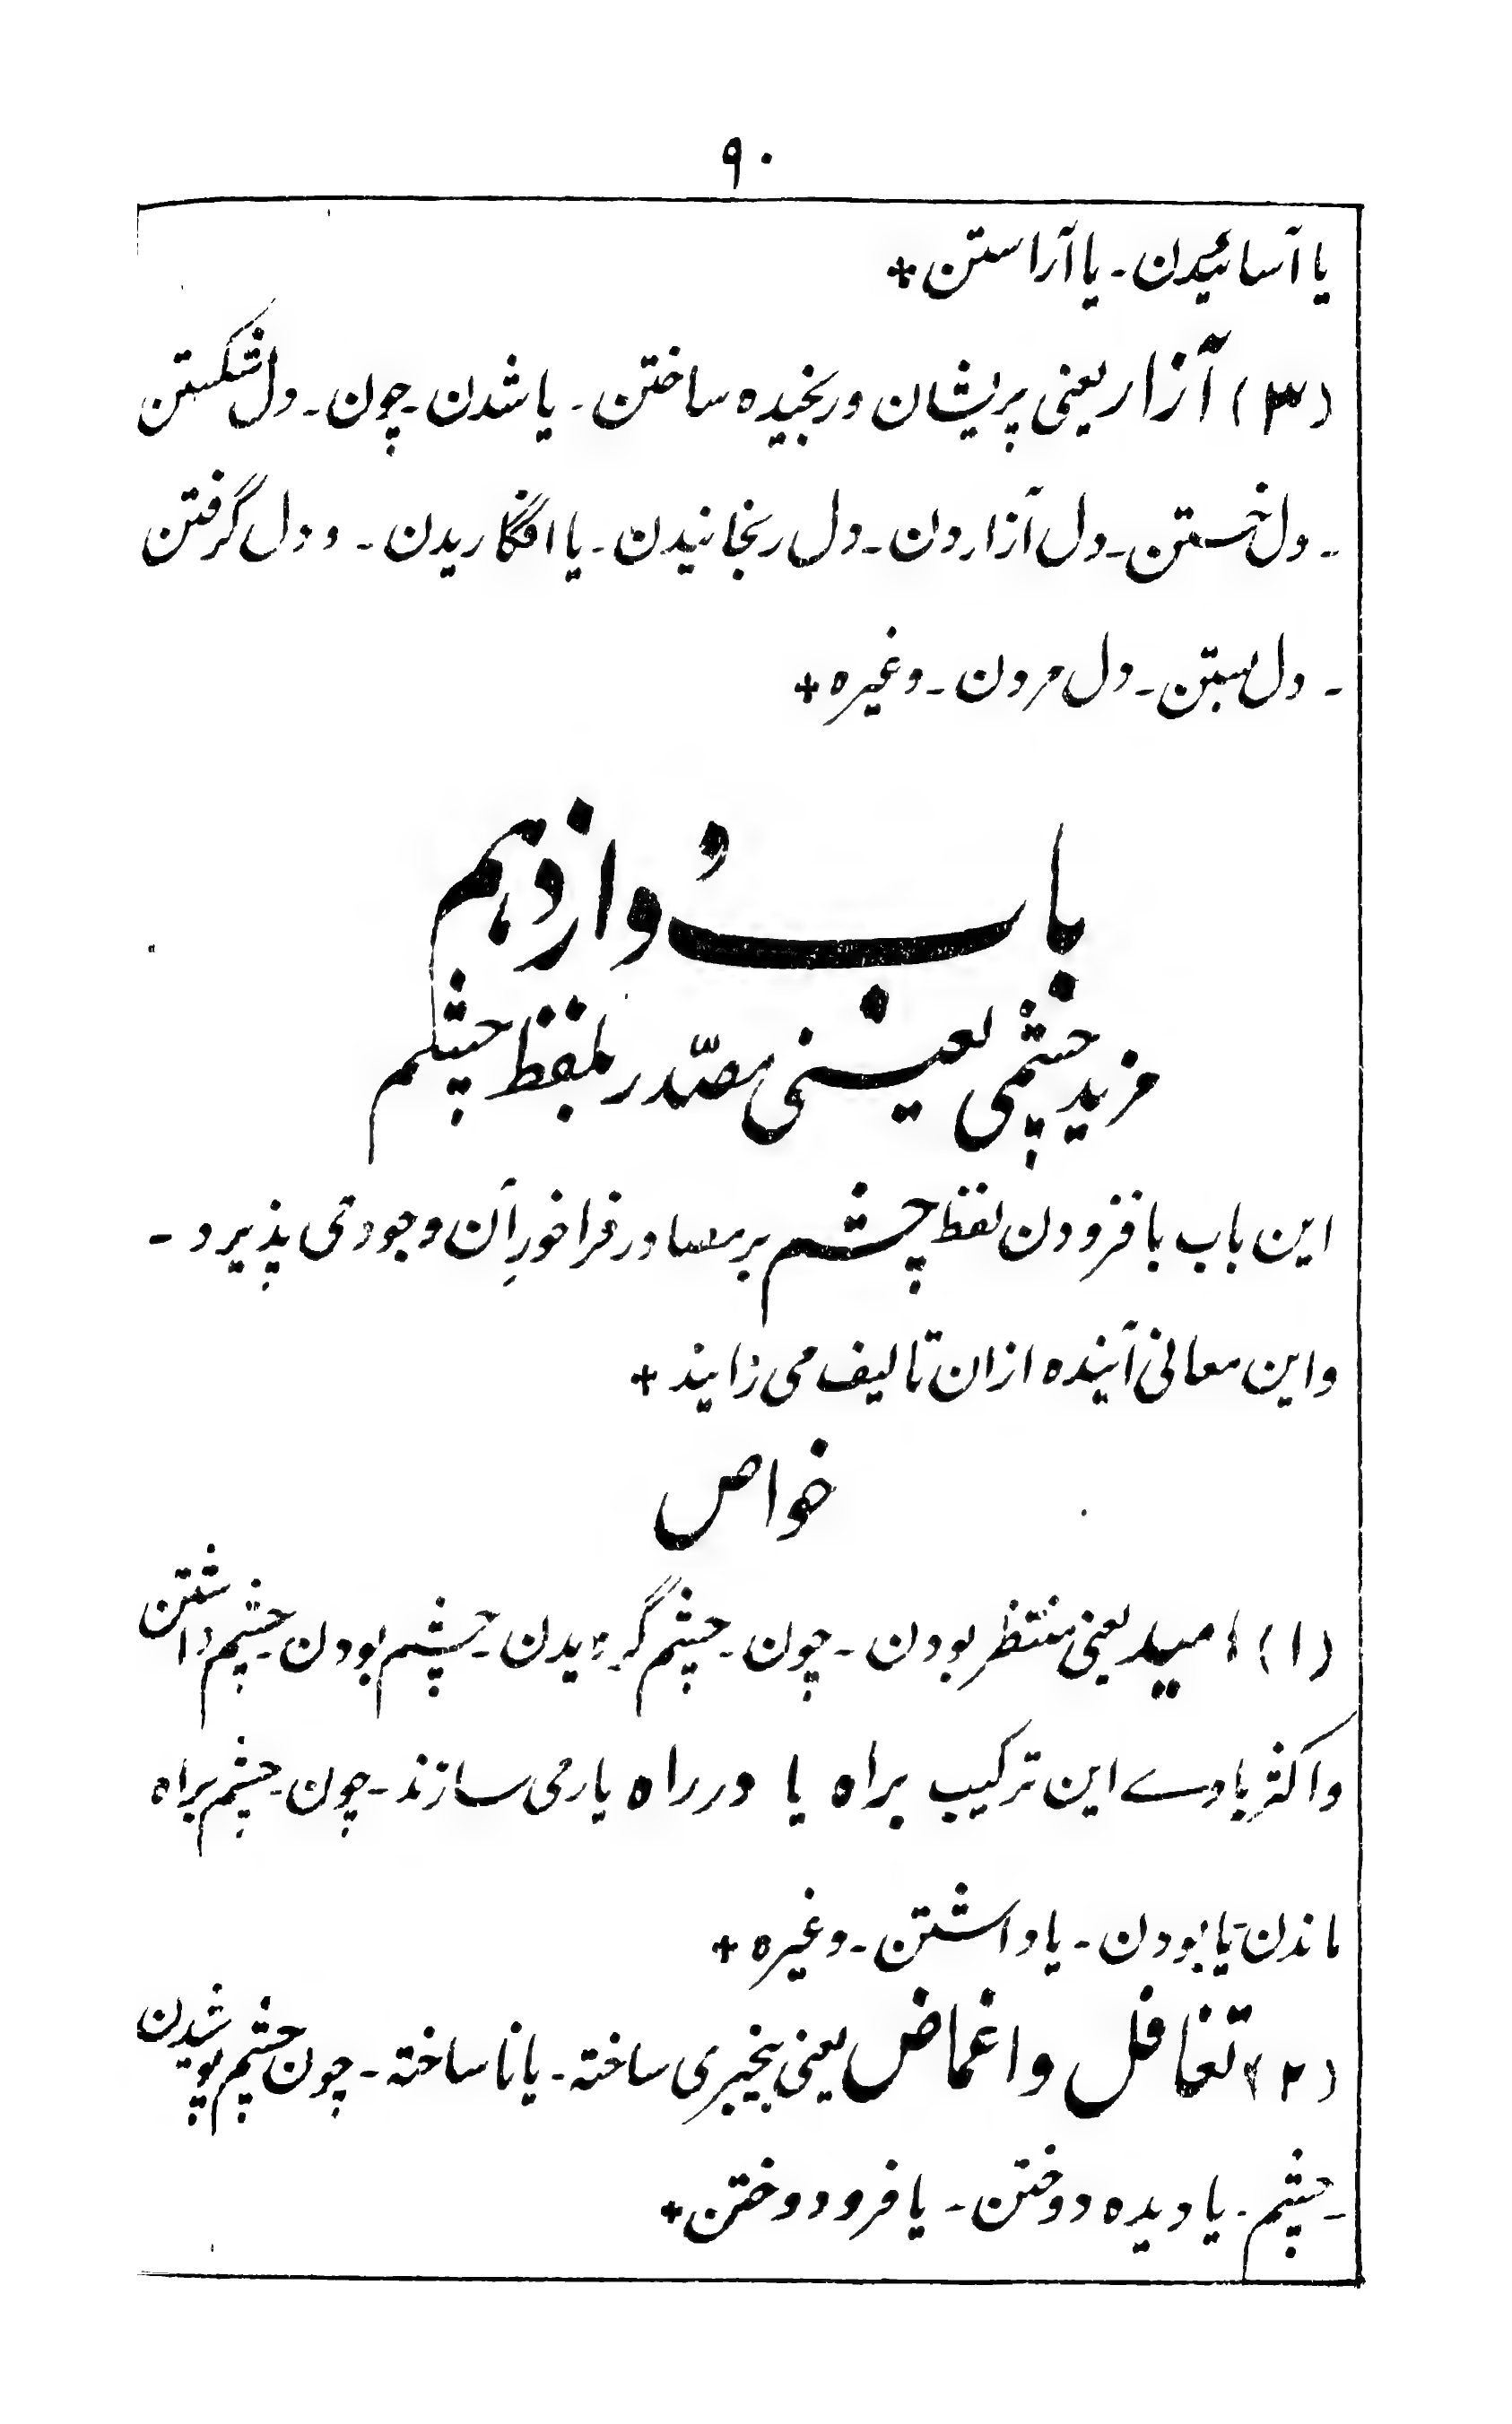 ۹۰
یا آسائیدن۔ یا آراستن+
(۳) آزار یعنی پریشان و رنجیده ساختن۔ یا شدن۔ چون۔ دل شکستن
۔ دل خستن۔ دل آزاردن۔ دل رنجانیدن۔ یا افگاریدن۔ و دل گرفتن
۔ دل بستن۔ دل مردن۔ وغیره+
باب دُوازدہم
مزید چشمی یعنی مصدّر بلفظ چشم
این باب بافزودن لفظ چشم بر مصادر فراخورِ آن وجود می پذیرد۔
و این معانی آینده ازان تالیف می زایند+
خواص
(۱) امید یعنی منتظر بودن۔ چون۔ چشم گردیدن۔ چشم بودن۔ چشم داشتن
و اکثر با وے این ترکیب براه یا در راه یار می سازند۔ چون۔ چشم براه
ماندن یا بودن۔ یا داشتن۔ وغیره+
(۲) تغافل و اغماض یعنی بیخبری ساخته۔ یا نا ساخته۔ چون چشم پوشیدن
۔ چشم۔ یا دیده دوختن۔ یا فرو دوختن+